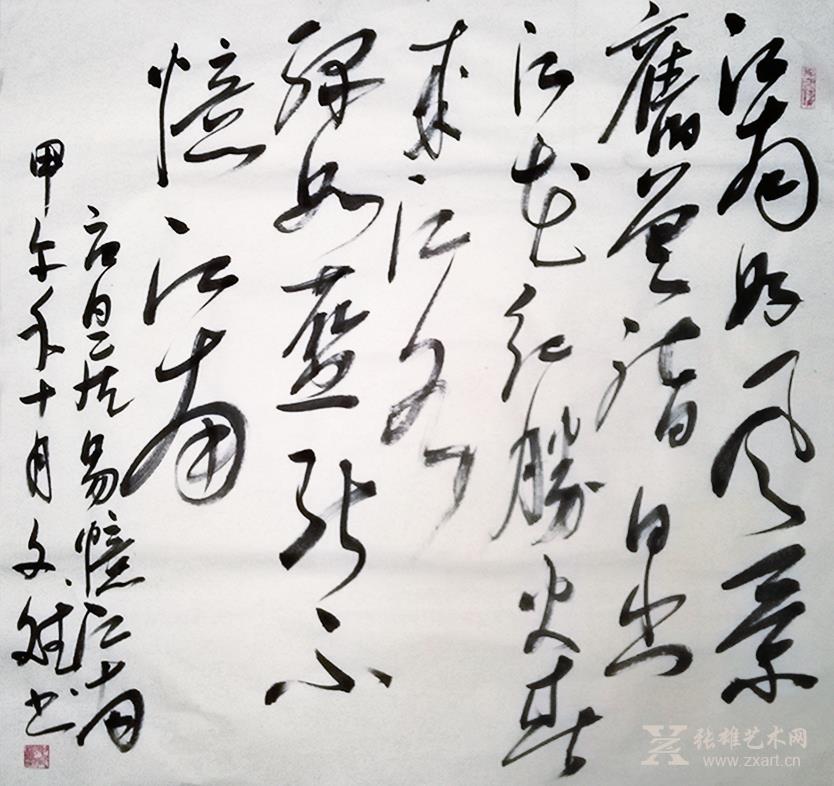 江南好风景
舊曾谙日出
江花红勝火春
来江水
绿如蓝能不
憶江南
右白居易憶江南
甲午年十月文书
张雄艺术网
www.zxart.cn